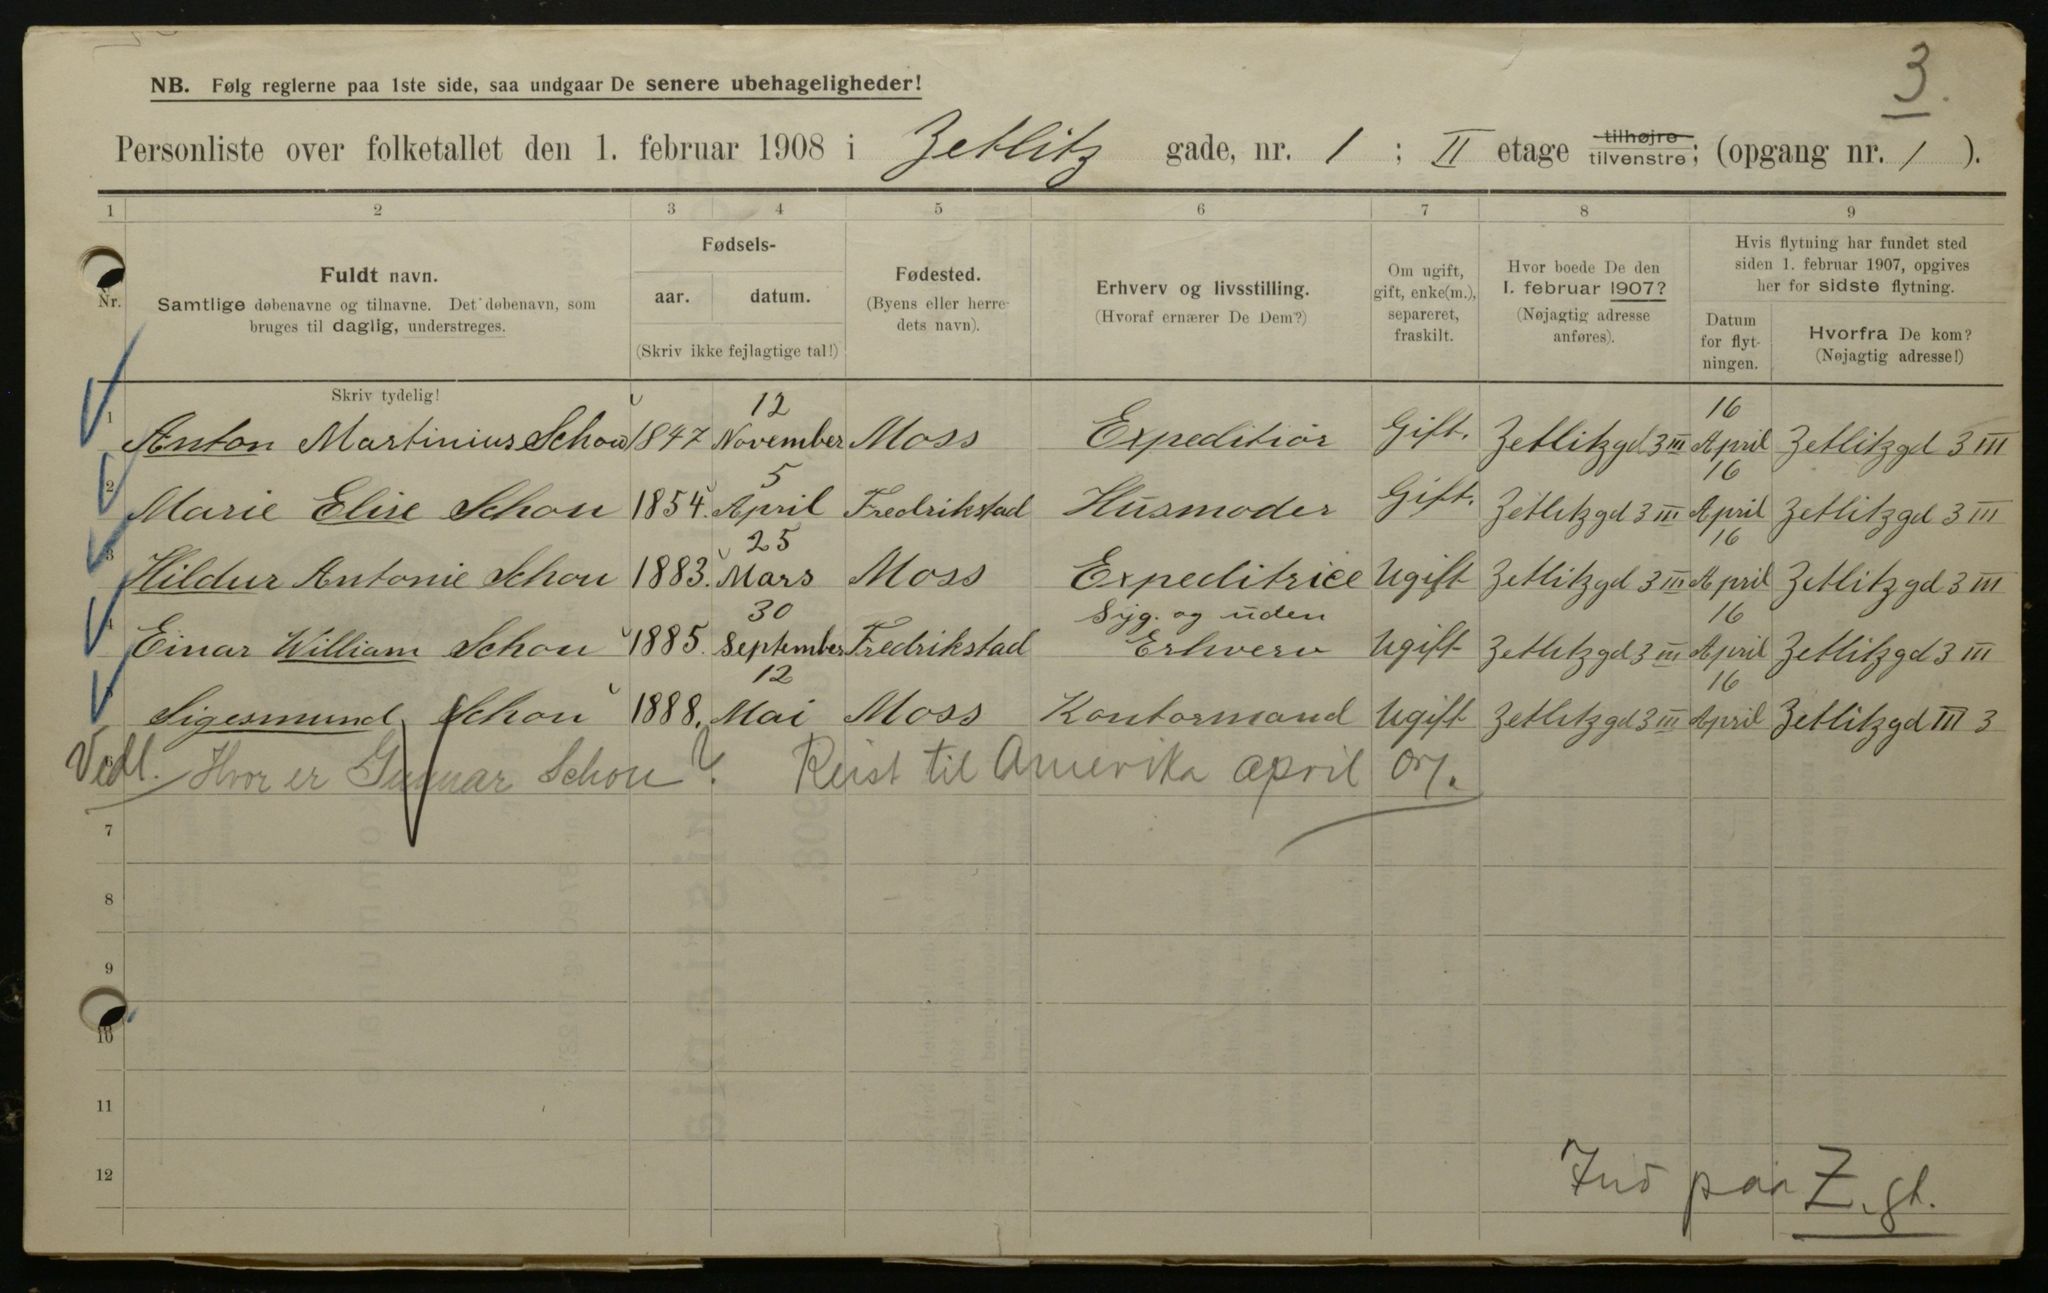 3.
NB. Følg reglerne paa 1ste side, saa undgaar De senere ubehageligheder!
Personliste over folketallet den 1. februar 1908 i Zetlitz gade, nr. 1 ; II etage tilhøjre tilvenstre; (opgang nr. 1 ).
1 2 3 4 5 6 7 8 9
Nr.
Fuldt navn.
Samtlige døbenavne og tilnavne. Det døbenavn, som
bruges til daglig, understreges.
Skriv tydelig!
Fødsels-
aar. datum.
(Skriv ikke fejlagtige tal!)
Fødested.
(Byens eller herre-
dets navn).
Erhverv og livsstilling.
(Hvoraf ernærer De Dem?)
Om ugift,
gift, enke(m.),
separeret,
fraskilt.
Hvor boede De den
1. februar 1907?
(Nøjagtig adresse
anføres).
Hvis flytning har fundet sted
siden 1. februar 1907, opgives
her for sidste flytning.
Datum
for flyt-
ningen.
Hvorfra De kom?
(Nøjagtig adresse!)
1 Anton Martinius Schou 1847 12 November Moss Expeditiør Gift. Zetlitzgd 3 III 16 April Zetlitzgd 3 III
2 Marie Elise Schou 1854. 5 April Fredrikstad Husmoder Gift. Zetlitzgd 3 III 16 April Zetlitzgd 3 III
3 Hildur Antonie Schou 1883. 25 Mars Moss Expeditrice Ugift Zetlitzgd 3 III 16 April Zetlitzgd 3 III
4 Einar William Schou 1885. 30 September Fredrikstad Syg. og uden Erhverv Ugift Zetlitzgd 3 III 16 April Zetlitzgd 3 III
5 Sigesmund Schou 1888. 12 Mai Moss Kontormand Ugift Zetlitzgd 3 III 16 April Zetlitzgd III 3
6 Vedl. Hvor er Gunnar Schou? Reist til Amerika april 07.
7
8
9
10
11
12
paa Z. gt.